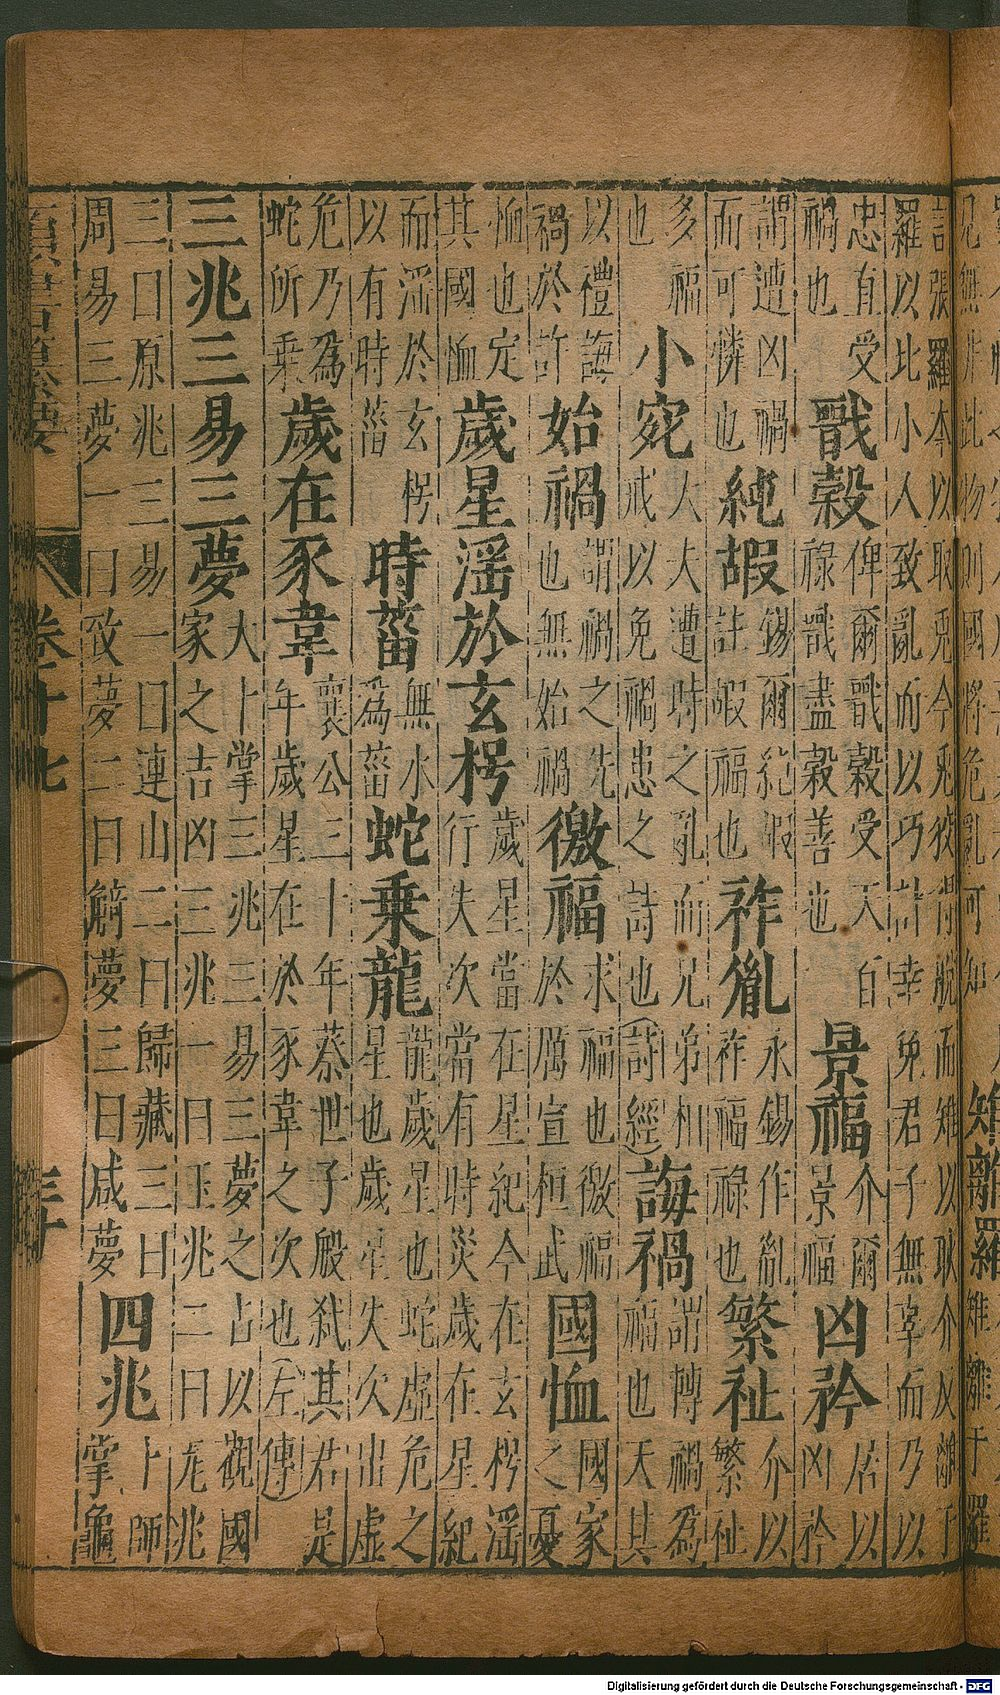 兄無非此物則國將危亂可知 雉離羅 雉離于羅
言張羅本以取兎今兎狡得脱而雉以耿介反離于羅以比小人致亂而以巧計幸免君子無辜而乃以
忠直受禍也 戩穀 俾爾戩穀受天百祿戩盡穀善也 景福 介爾景福 凶矜 居以凶矜
謂遭凶禍而可憐也 純嘏 錫爾純嘏註嘏福也 祚胤 永錫作胤祚福祿也 繁祉 介以繁祉
多福也 小宛 大夫遭時之亂而兄弟相戒以免禍患之詩也(詩經) 誨禍 謂轉禍為福也天其
以禮誨禍於許 始禍 謂禍之先也無始禍 徼福 求福也徼福於厲宣桓武 國恤 國家之憂
恤也定其國恤 歲星滛於玄枵 歲星當在星紀今在玄枵滛行失次當有時災歲在星紀
而滛於玄枵以有時菑 時菑 無水為菑 蛇乘龍 龍歲星也蛇虛危之星也歲星失次出虛
危乃為蛇所乘 歲在豕韋 襄公三十年蔡世子般弑其君是年歲星在於豕韋之次也(左傳)
三兆三易三夢 大卜掌三兆三易三夢之占以觀國家之吉凶三兆一曰玉兆二曰瓦兆
三曰原兆三易一曰連山二曰歸藏三曰周易三夢一曰致夢二曰觭夢三曰咸夢 四兆 卜師掌龜
卷十七 三十
Digitalisierung gefördert durch die Deutsche Forschungsgemeinschaft - DFG